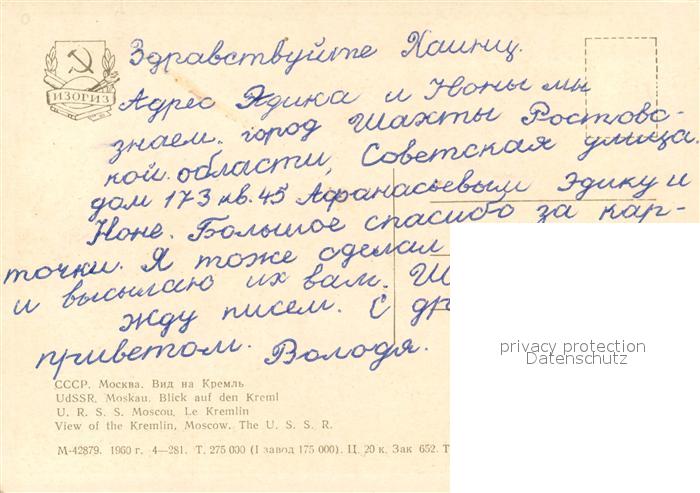 Здравствуйте Хаинц.
ИЗОГИЗ
Адрес Эдика и Ноны мы
знаем. город Шахты Ростовс-
кой области, Советская улица.
дом 173 кв. 45 Афанасьевым Эдику и
Ноне. Большое спасибо за кар-
точки. Я тоже сделал
и высылаю их вам.
Жду писем. С
приветом. Володя.
privacy protection
Datenschutz
СССР. Москва. Вид на Кремль
UdSSR. Moskau. Blick auf den Kreml
U. R. S. S. Moscou. Le Kremlin
View of the Kremlin, Moscow. The U. S. S. R.
М-42879. 1960 г. 4—281. Т. 275 000 (I завод 175 000). Ц. 20 к. Зак 652. Т